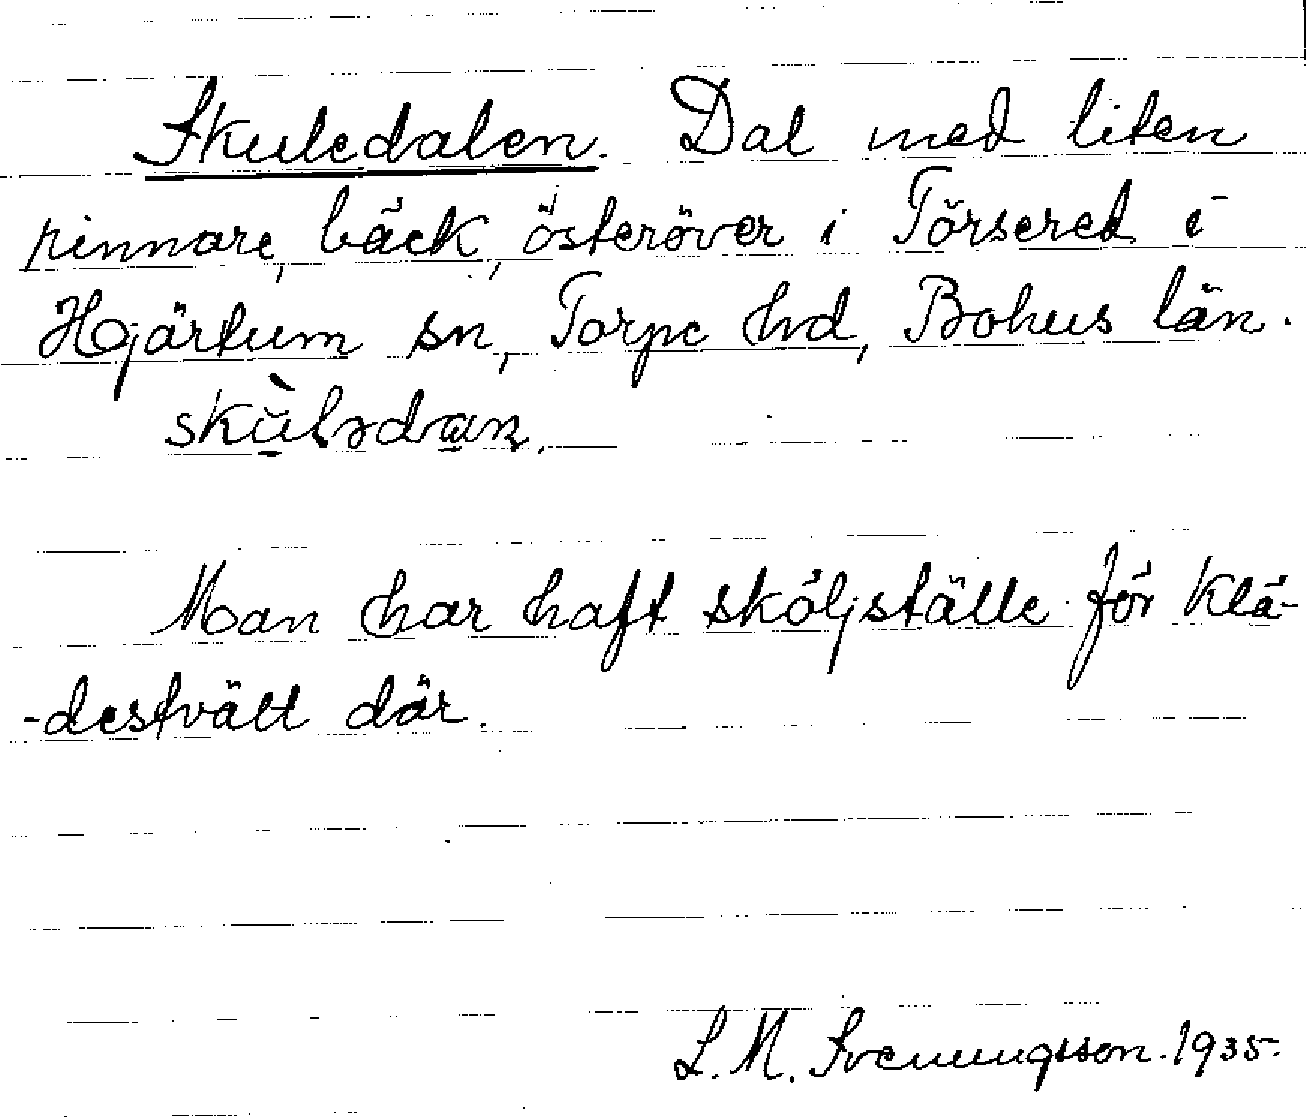 Skuledalen. Dal med liten
rinnare, bäck, österöver i Törsered i
Hjärtum sn, Torpe hd, Bohus län.
Man har haft sköljställe för klä-
-destvätt där.
L. M. Svenungsson. 1935.